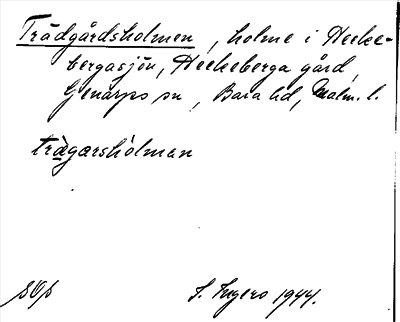 Trädgårdsholmen, holme i Hecke-
bergasjön, Heckeberga gård,
Genarps sn, Bara hd, Malm. l.
trägarshòlman
S. Ingers 1944.